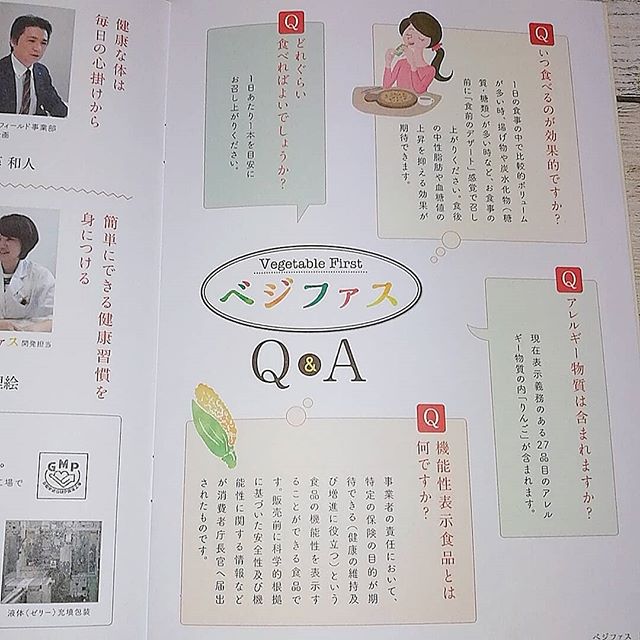 Q
いつ食べるのが効果的ですか？
1日の食事の中で比較的ボリューム
が多い時、揚げ物や炭水化物（糖
質・糖類）が多い時など、お食事の
前に「食前のデザート」感覚で召し
上がりください。食後
の中性脂肪や血糖値の
上昇を抑える効果が
期待できます。
Q
どれぐらい
食べればよいでしょうか？
1日あたり1本を目安に
お召し上がりください。
Vegetable First
ベジファス
Q&A
Q
アレルギー物質は含まれますか？
現在表示義務のある27品目のアレル
ギー物質の内「りんご」が含まれます。
Q
機能性表示食品とは
何ですか？
事業者の責任において、
特定の保険の目的が期
待できる（健康の維持及
び増進に役立つ）という
食品の機能性を表示す
ることができる食品で
す。販売前に科学的根拠
に基づいた安全性及び機
能性に関する情報など
が消費者庁長官へ届出
されたものです。
ベジファス
健康な体は
毎日の心掛けから
フィールド事業部
和人
簡単にできる健康習慣を
身につける
ァス開発担当
絵
GMP
工場で
液体（ゼリー）充填包装